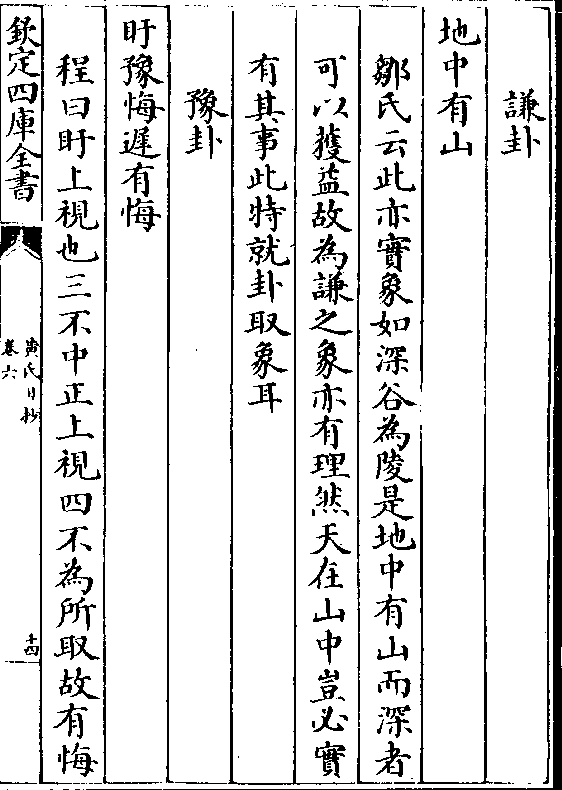 謙卦
地中有山
鄒氏云此亦實象如深谷為陵是地中有山而深者
可以獲益故為謙之象亦有理然天在山中豈必實
有其事此特就卦取象耳
豫卦
盱豫悔遲有悔
程曰盱上視也三不中正上視四不為所取故有悔
欽定四庫全書
黃氏日抄
卷六
十四